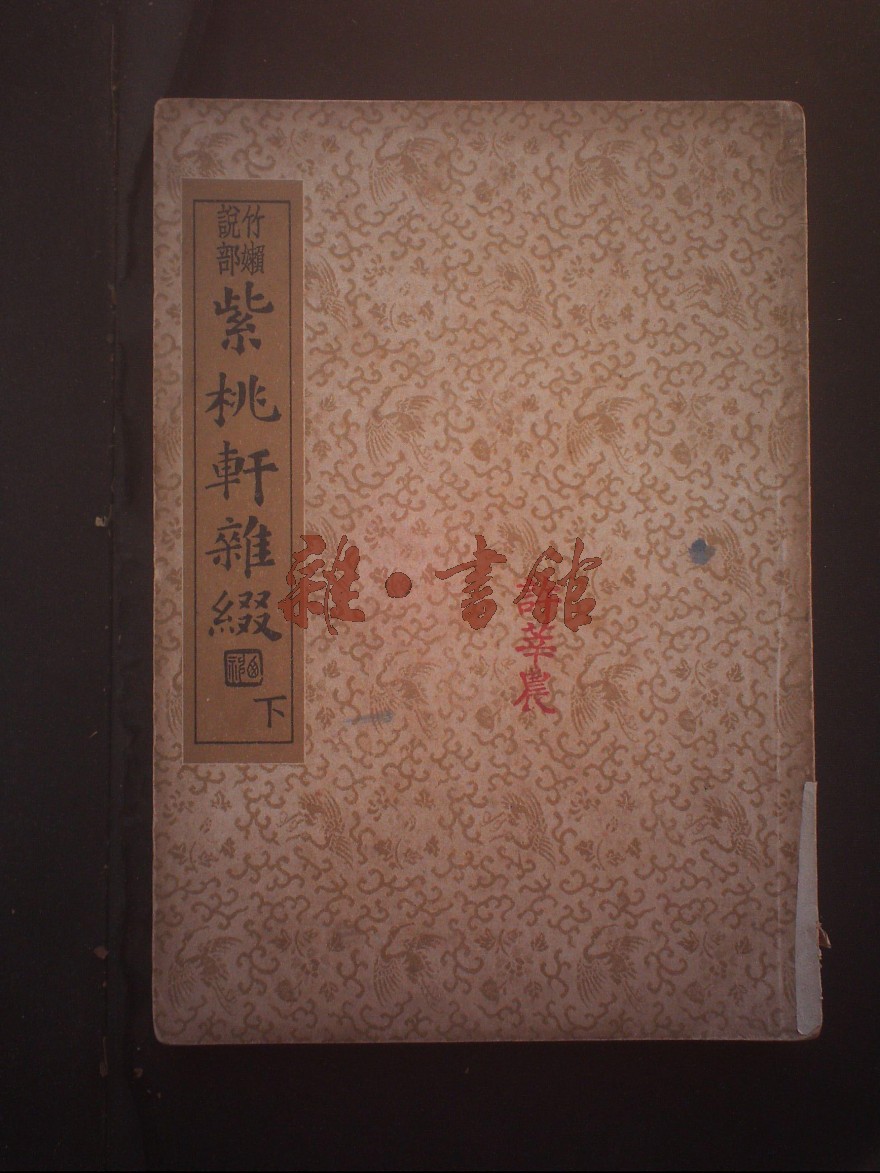 竹嬾
說部
紫桃軒雜綴
下
雜·書館
莘農